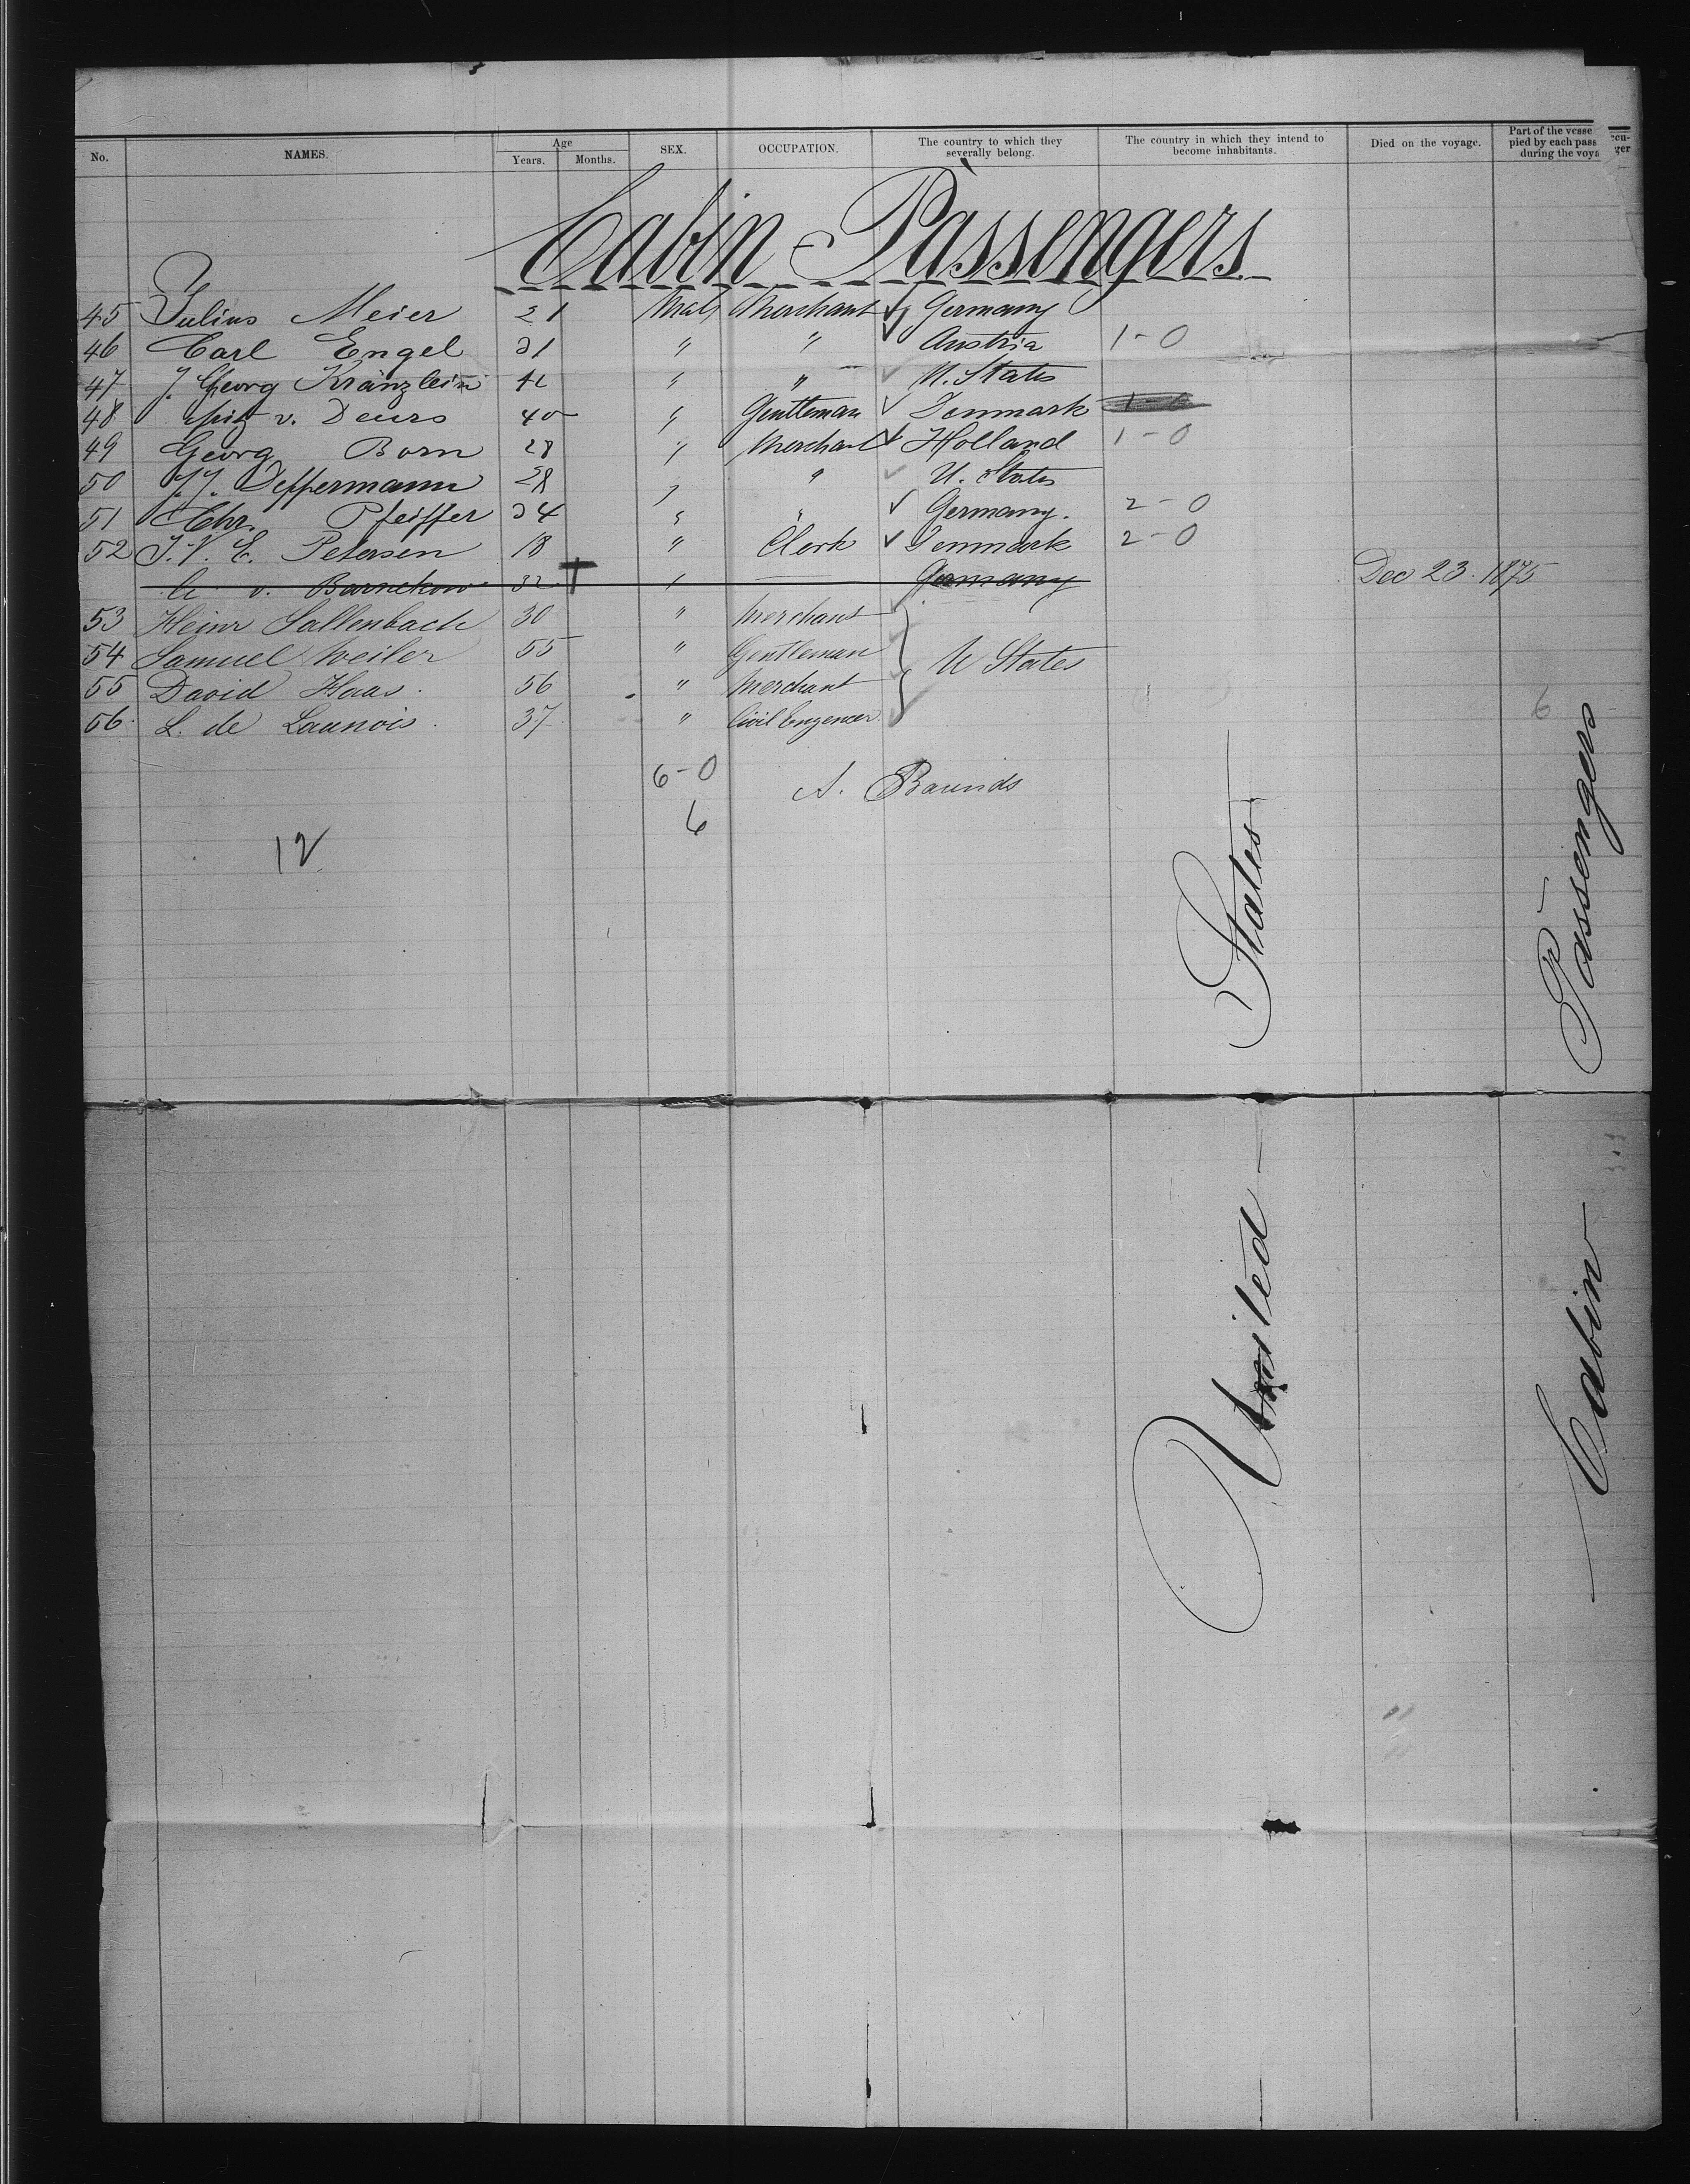 No. NAMES. Age Years. Months. SEX. OCCUPATION. The country to which they severally belong. The country in which they intend to become inhabitants. Died on the voyage. Part of the vesse pied by each pass during the voya
cu- ger
Cabin Passengers
45 Julius Meier 21 Male Merchant Germany
46 Carl Engel 21 " " Austria 1-0
47 J. Georg Kränzlein " " U. States
48 v. Deurs 40 " Gentleman Denmark
49 Georg Born 28 " Merchant Holland 1-0
50 J. J. Deppermann 28 " " U. States
51 Chr. Pfeiffer 24 " " Germany. 2-0
52 J. V. E. Petersen 18 " Clerk Denmark 2-0
v. Barnekow 32 † " Germany Dec 23. 1875
53 Heinr Sallenbach 30 " Merchant
54 Samuel Weiler 55 " Gentleman U States
55 David Haas. 56 " Merchant
56. L. de Launois. 37 " Civil Engeneer
6-0
6
A. Barends
12
6
United States
Cabin Passengers